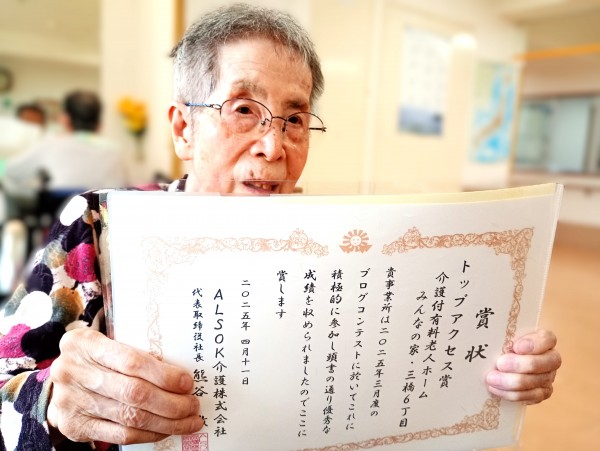 賞状
トップアクセス賞
介護付有料老人ホーム
みんなの家・三橋6丁目
貴事業所は二〇二五年三月度の
ブログコンテストに於いてこれに
積極的に参加し頭書の通り優秀な
成績を収められましたのでここに
賞します
二〇二五年 四月十一日
ALSOK介護株式会社
代表取締役社長 熊谷